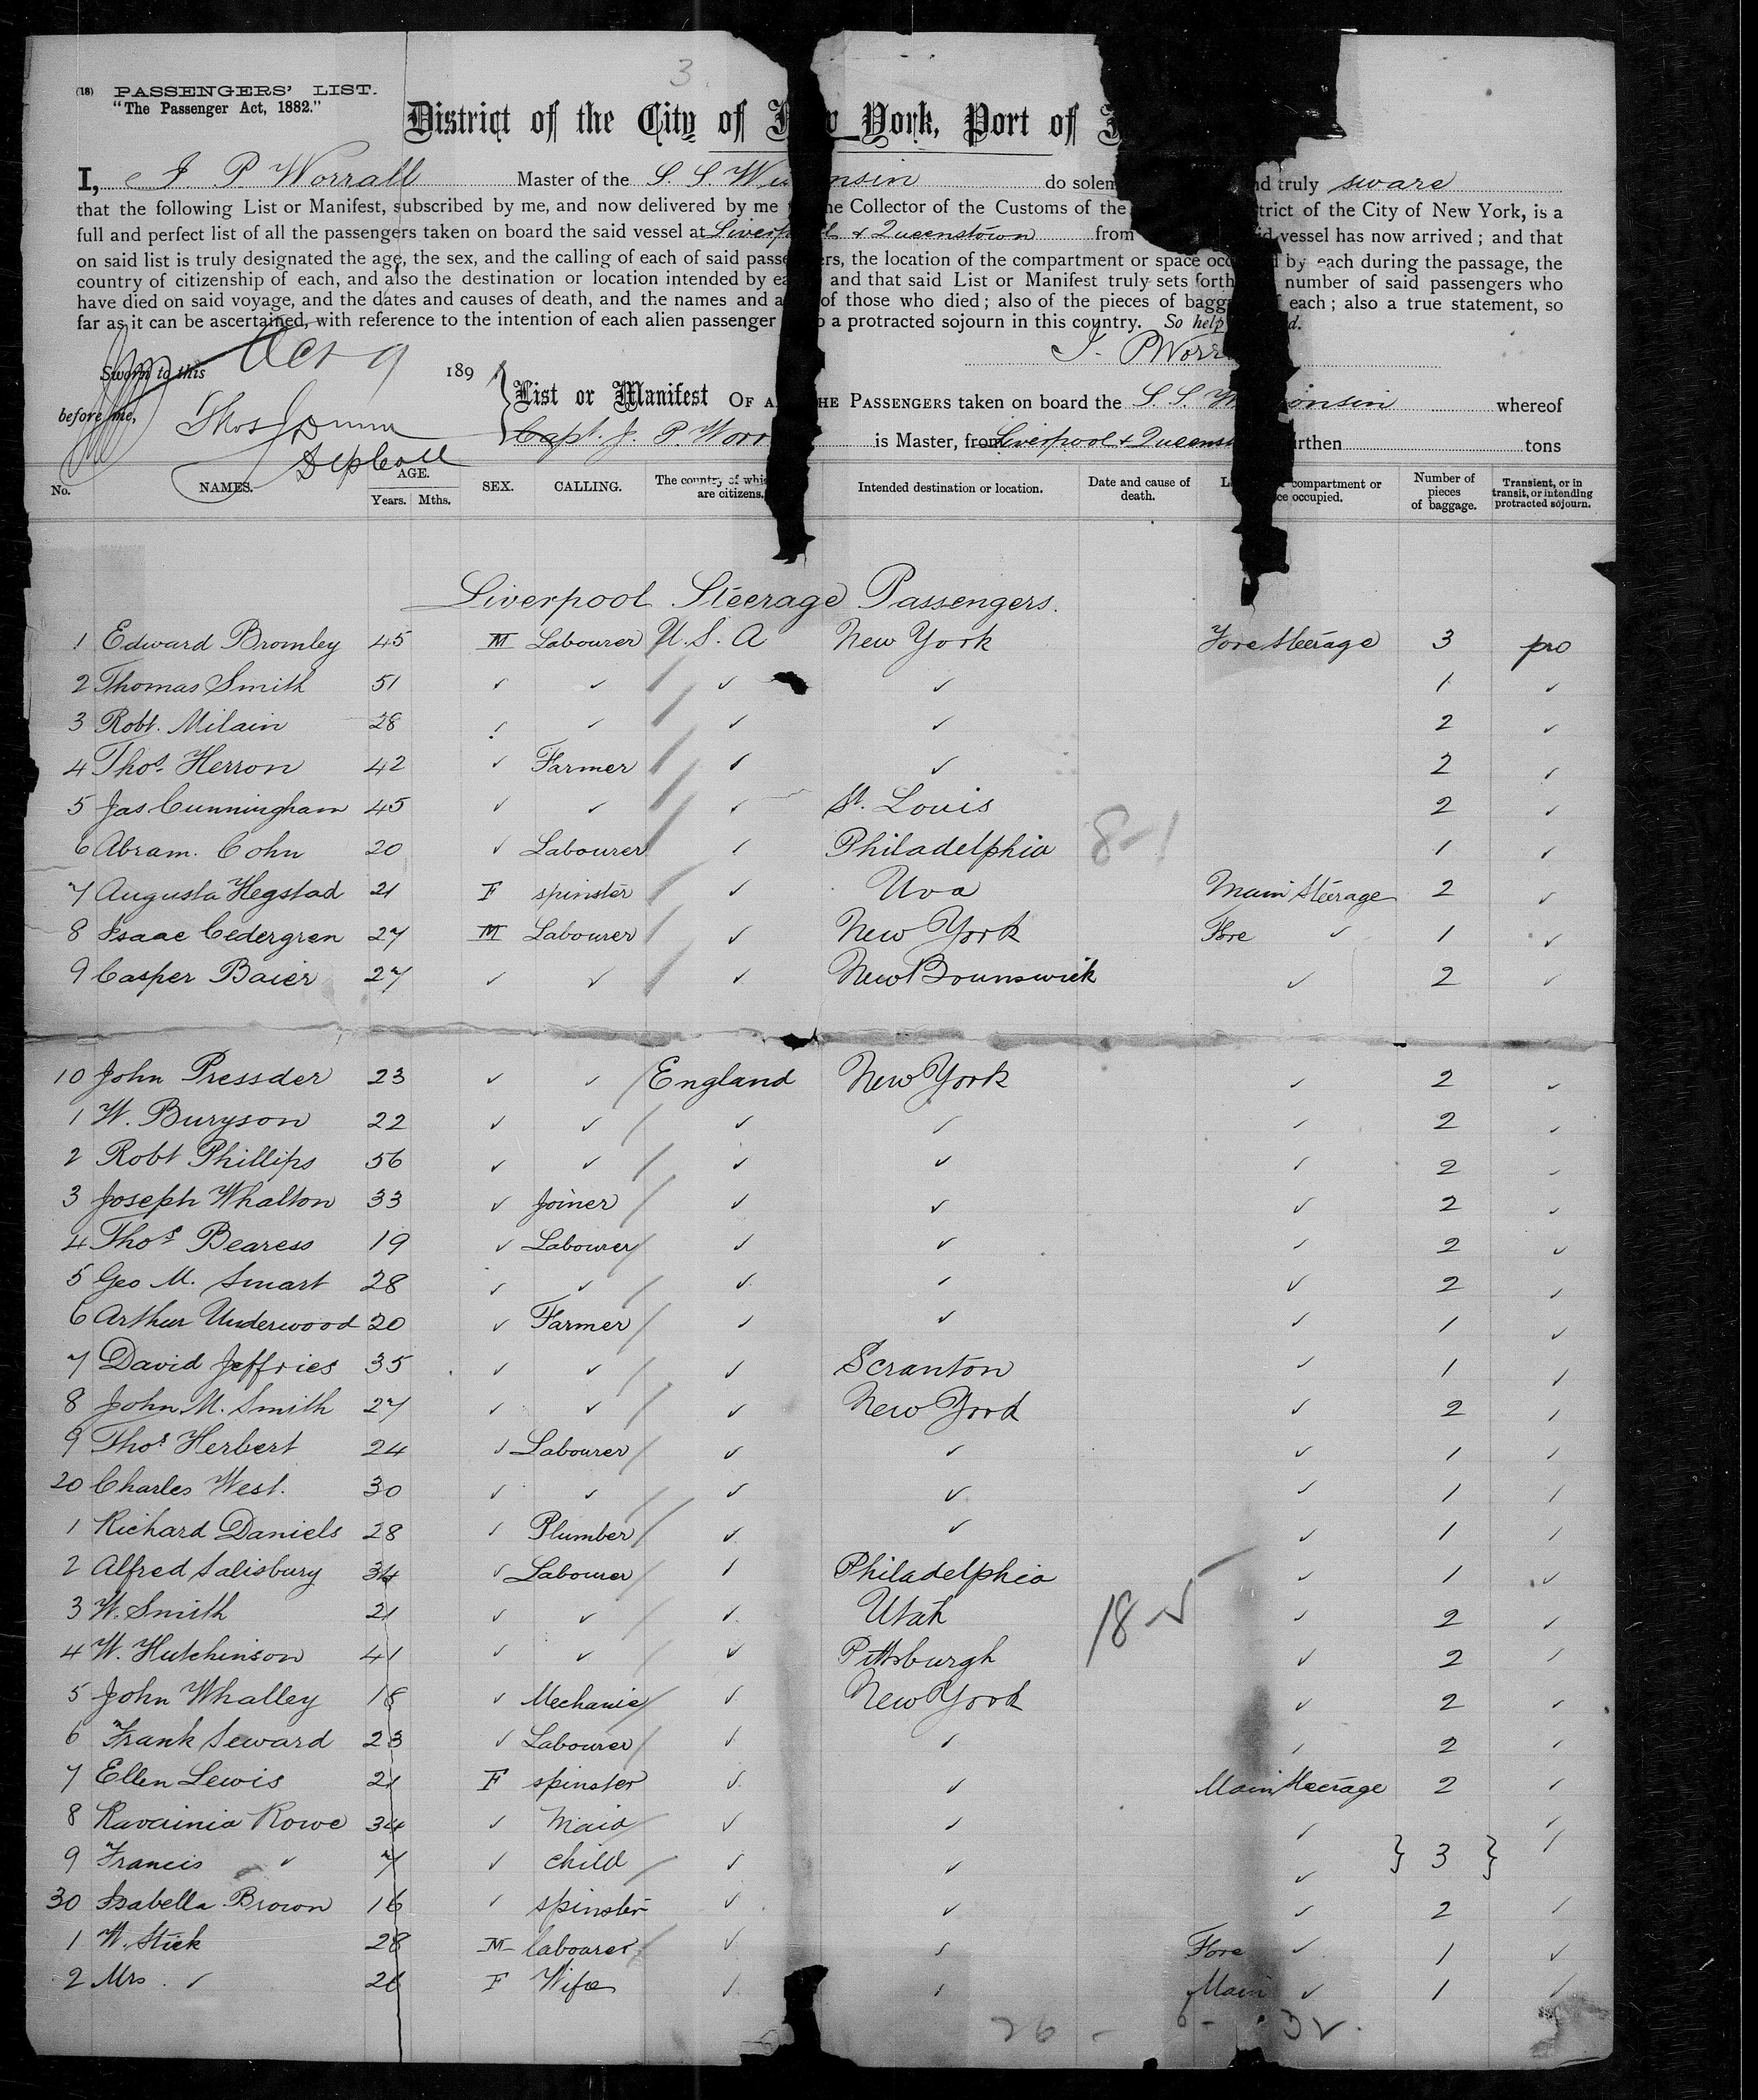 3
(18) PASSENGERS' LIST.
"The Passenger Act, 1882."
District of the City of York, Port of
I, J. P. Worrall Master of the S. S. W nsin do solem nd truly sware
that the following List or Manifest, subscribed by me, and now delivered by me he Collector of the Customs of the trict of the City of New York, is a
full and perfect list of all the passengers taken on board the said vessel at Liverp l & Queenstown from id vessel has now arrived; and that
on said list is truly designated the age, the sex, and the calling of each of said passe ers, the location of the compartment or space occ d by each during the passage, the
country of citizenship of each, and also the destination or location intended by ea and that said List or Manifest truly sets forth number of said passengers who
have died on said voyage, and the dates and causes of death, and the names and a of those who died; also of the pieces of bagga f each; also a true statement, so
far as it can be ascertained, with reference to the intention of each alien passenger o a protracted sojourn in this country. So help d.
J. P Worra
Sworn to this Oct 9 189
before me, Thos J Dunn
Dep Coll
List or Manifest OF A HE PASSENGERS taken on board the S. S. W onsin whereof
Capt. J. P. Worr is Master, from Liverpool & Queenst urthen tons
No. NAMES. AGE. Years. Mths. SEX. CALLING. The country of whic are citizens. Intended destination or location. Date and cause of death. L compartment or ce occupied. Number of pieces of baggage. Transient, or in transit, or intending protracted sojourn.
Liverpool Steerage Passengers.
1 Edward Bromley 45 M Labourer U. S. A New York Fore Steerage 3 pro
2 Thomas Smith 51 ✓ ✓ ✓ ✓ 1 ✓
3 Robt. Milain 28 ✓ ✓ ✓ ✓ 2 ✓
4 Thos. Herron 42 ✓ Farmer ✓ ✓ 2 ✓
5 Jas Cunningham 45 ✓ ✓ ✓ St. Louis 2 ✓
6 Abram. Cohn 20 ✓ Labourer ✓ Philadelphia 8-1 1 ✓
7 Augusta Hegstad 21 F spinster ✓ Main Steerage 2 ✓
8 Isaac Cedergren 27 M Labourer ✓ New York Fore ✓ 1 ✓
9 Casper Baier 27 ✓ ✓ ✓ New Brunswick ✓ 2 ✓
10 John Pressder 23 ✓ ✓ England New York ✓ 2 ✓
1 W. Buryson 22 ✓ ✓ ✓ ✓ ✓ 2 ✓
2 Robt Phillips 56 ✓ ✓ ✓ ✓ ✓ 2 ✓
3 Joseph Whalton 33 ✓ Joiner ✓ ✓ ✓ 2 ✓
4 Thos Bearess 19 ✓ Labourer ✓ ✓ ✓ 2 ✓
5 Geo M. Smart 28 ✓ ✓ ✓ ✓ ✓ 2 ✓
6 Arthur Underwood 20 ✓ Farmer ✓ ✓ ✓ 1 ✓
7 David Jeffries 35 ✓ ✓ ✓ Scranton ✓ 1 ✓
8 John M. Smith 27 ✓ ✓ ✓ New York ✓ 2 ✓
9 Thos Herbert 24 ✓ Labourer ✓ ✓ ✓ 1 ✓
20 Charles West. 30 ✓ ✓ ✓ ✓ ✓ 1 ✓
1 Richard Daniels 28 ✓ Plumber ✓ ✓ ✓ 1 ✓
2 Alfred Salisbury 34 ✓ Labourer ✓ Philadelphia ✓ 1 ✓
3 W. Smith 21 ✓ ✓ ✓ Utah 18 ✓ ✓ 2 ✓
4 W. Hutchinson 41 ✓ ✓ ✓ Pittsburgh ✓ 2 ✓
5 John Whalley 18 ✓ Mechanic ✓ New York ✓ 2 ✓
6 Frank Seward 23 ✓ Labourer ✓ ✓ ✓ 2 ✓
7 Ellen Lewis 21 F spinster ✓ ✓ Main Steerage 2 ✓
8 Ravainia Rowe 34 ✓ maid ✓ ✓ ✓ } 3 } ✓
9 Francis ✓ 7 ✓ child ✓ ✓ ✓
30 Isabella Brown 16 ✓ spinster ✓ ✓ ✓ 2 ✓
1 W. Stick 28 M labourer ✓ ✓ Fore ✓ 1 ✓
2 Mrs. ✓ 26 F Wife ✓ ✓ Main ✓ 1 ✓
26 - 6 -